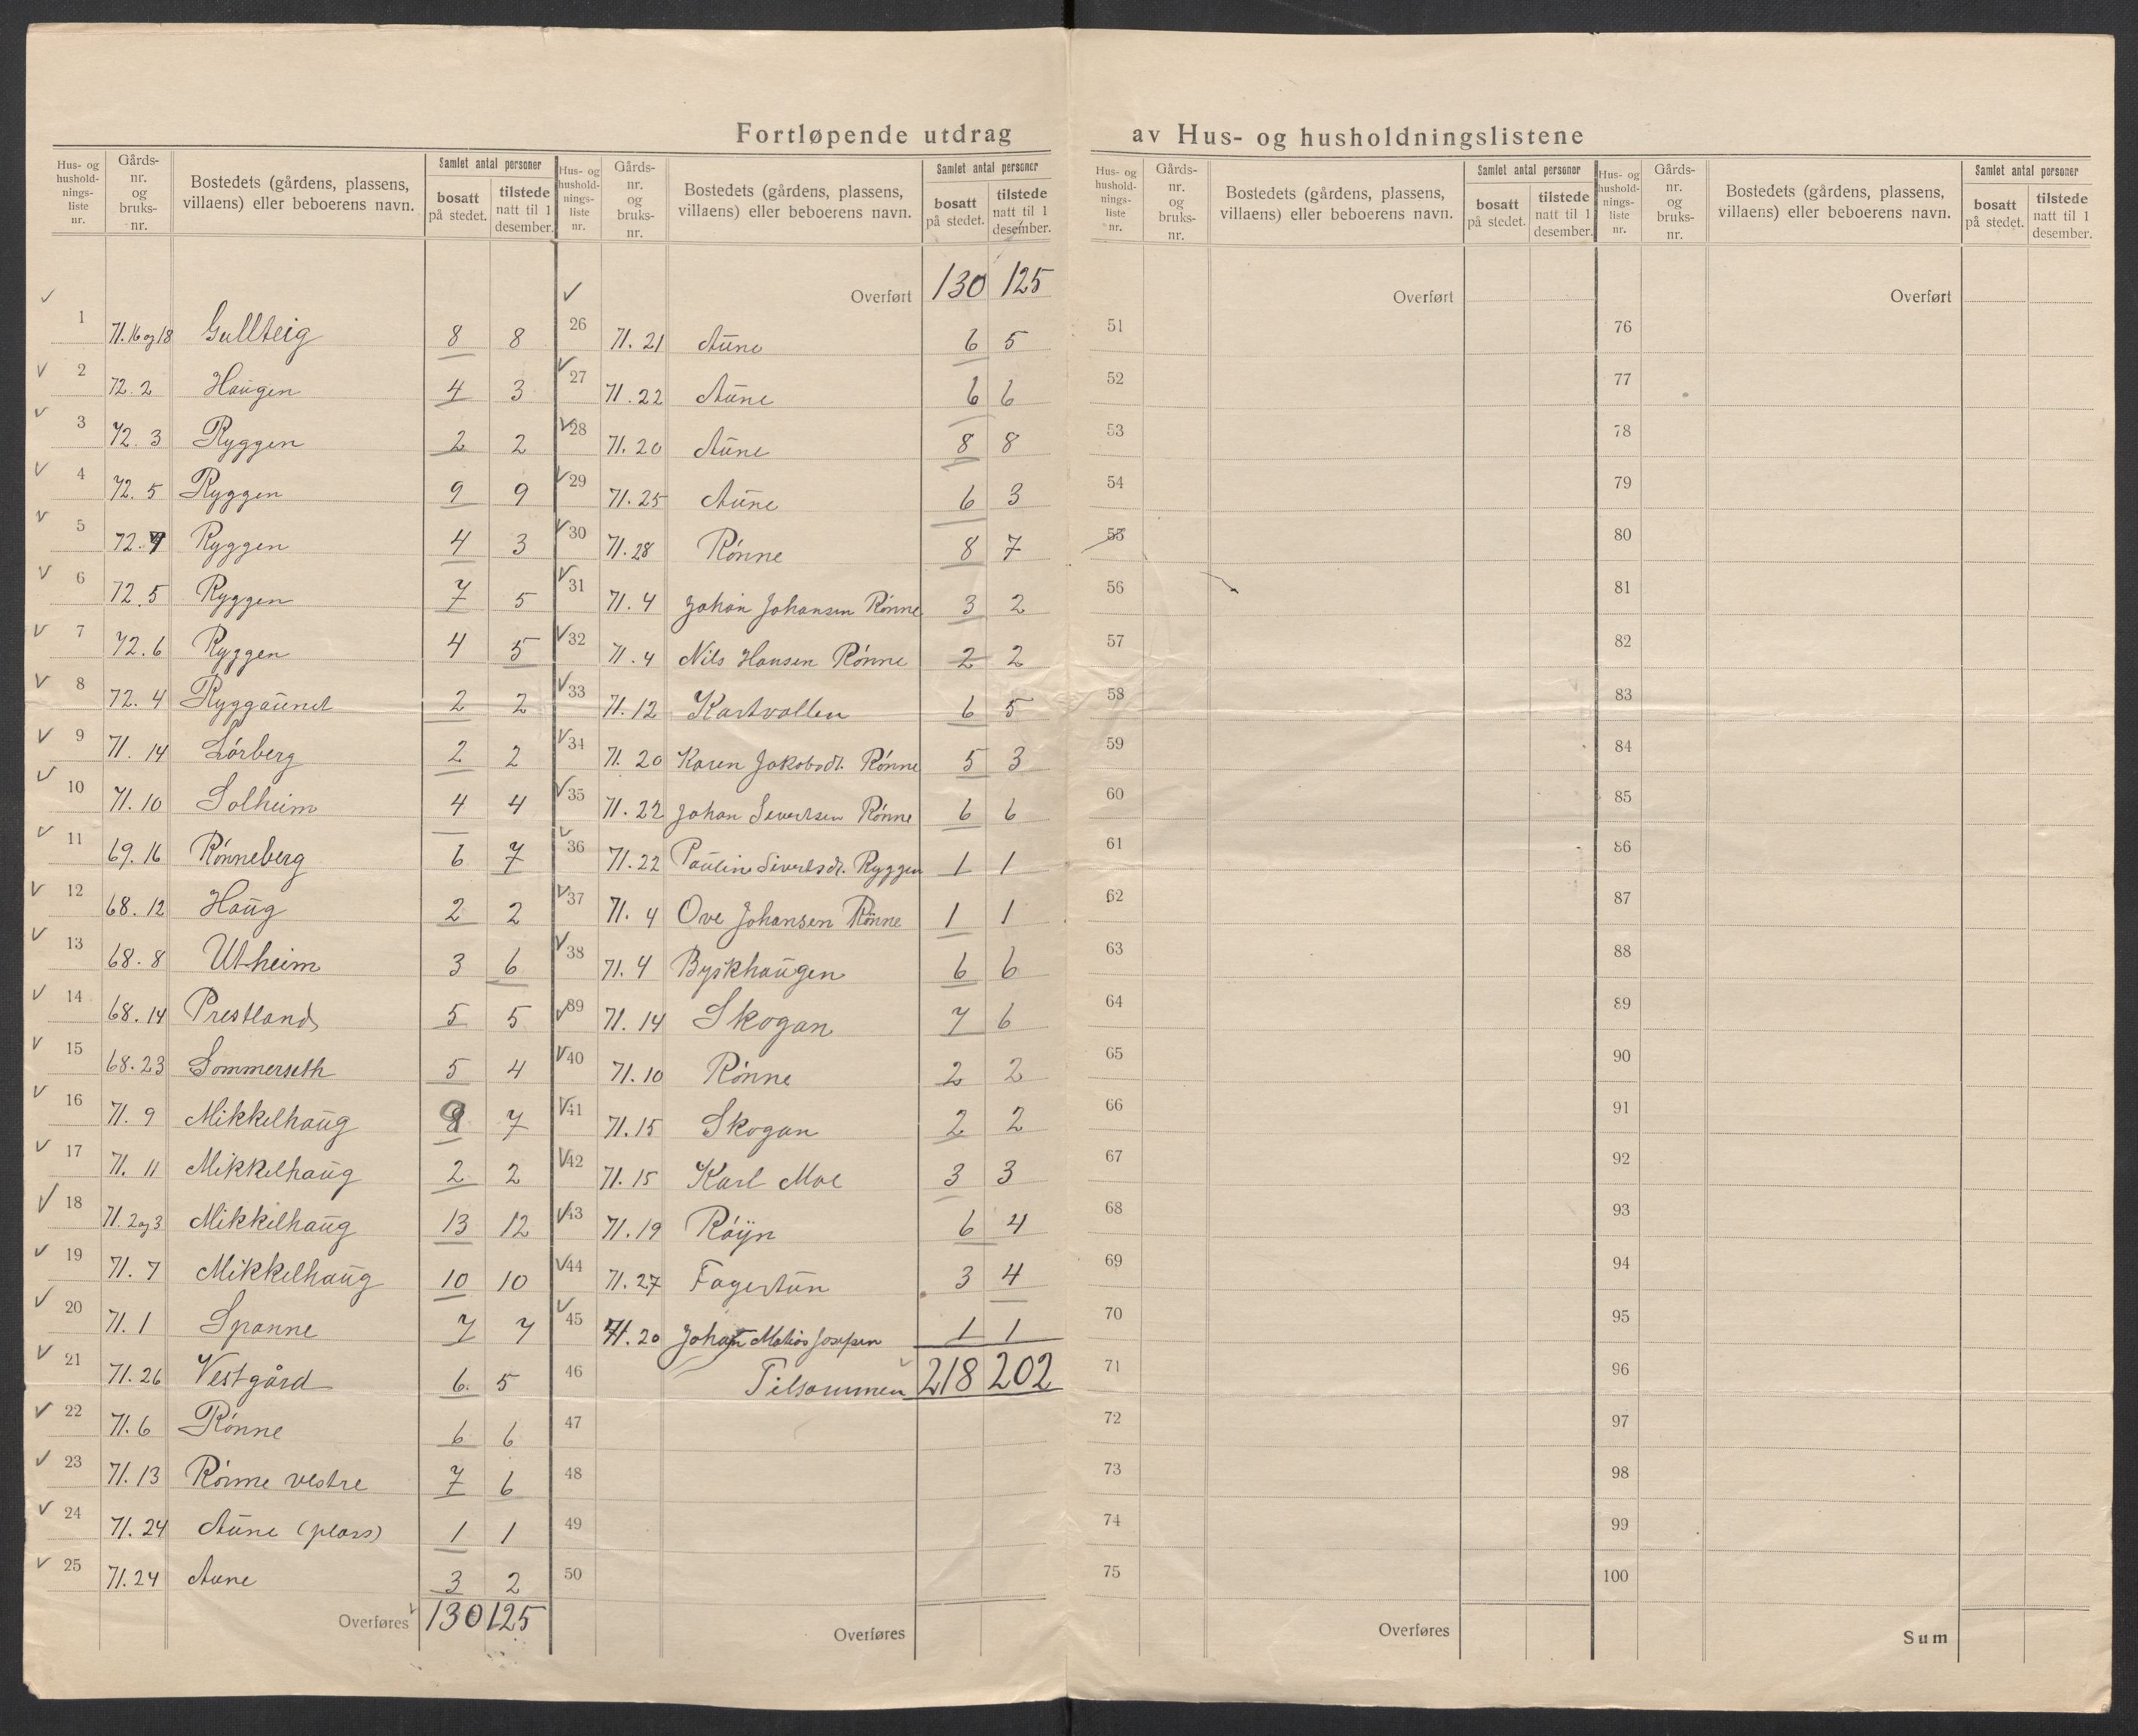 Fortløpende utdrag av Hus- og husholdningslistene
Hus- og husholdnings-liste nr. Gårds-nr. og bruks-nr. Bostedets (gårdens, plassens, villaens) eller beboerens navn. Samlet antal personer bosatt på stedet. tilstede natt til 1 desember.
1 71.16 og 18 Gullteig 8 8
2 72.2 Haugen 4 3
3 72.3 Ryggen 2 2
4 72.5 Ryggen 9 9
5 72.7 Ryggen 4 3
6 72.5 Ryggen 7 5
7 72.6 Ryggen 4 5
8 72.4 Ryggaunet 2 2
9 71.14 Lórberg 2 2
10 71.10 Solheim 4 4
11 69.16 Rónneberg 6 7
12 68.12 Haug 2 2
13 68.8 Utheim 3 6
14 68.14 Prestland 5 5
15 68.23 Sommerseth 5 4
16 71.9 Mikkelhaug 8 7
17 71.11 Mikkelhaug 2 2
18 71.2 og 3 Mikkelhaug 13 12
19 71.7 Mikkelhaug 10 10
20 71.1 Spanne 7 7
21 71.26 Vestgård 6. 5
22 71.6 Rónne 6 6
23 71.13 Rónne vestre 7 6
24 71.24 Aune (plass) 1 1
25 71.24 Aune 3 2
Overføres 130 125
Hus- og hushold-nings-liste nr. Gårds-nr. og bruks-nr. Bostedets (gårdens, plassens, villaens) eller beboerens navn. Samlet antal personer bosatt på stedet. tilstede natt til 1 desember.
Overført 130 125
26 71.21 Aune 6 5
27 71.22 Aune 6 6
28 71.20 Aune 8 8
29 71.25 Aune 6 3
30 71.28 Rónne 8 7
31 71.4 Johan Johansen Rónne 3 2
32 71.4 Nils Hansen Rónne 2 2
33 71.12 Kartvollen 6 5
34 71.20 Karen Jakobsdt. Rónne 5 3
35 71.22 Johan Severtsen Rónne 6 6
36 71.22 Paulin Sivertsdt. Ryggen 1 1
37 71.4 Ove Johansen Rónne 1 1
38 71.4 Byskhaugen 6 6
39 71.14 Skogan 7 6
40 71.10 Rónne 2 2
41 71.15 Skogan 2 2
42 71.15 Karl Moe 3 3
43 71.19 Róyn 6 4
44 71.27 Fagertun 3 4
45 71.20 Johan Matias Josefsen 1 1
46 Tilsammen 218 202
47
48
49
50
Overføres
Hus- og hushold-nings-liste nr. Gårds-nr. og bruks-nr. Bostedets (gårdens, plassens, villaens) eller beboerens navn. Samlet antal personer bosatt på stedet. tilstede natt til 1 desember.
Overført
51
52
53
54
55
56
57
58
59
60
61
62
63
64
65
66
67
68
69
70
71
72
73
74
75
Overføres
Hus- og hushold-nings-liste nr. Gårds-nr. og bruks-nr. Bostedets (gårdens, plassens, villaens) eller beboerens navn. Samlet antal personer bosatt på stedet. tilstede natt til 1 desember.
Overført
76
77
78
79
80
81
82
83
84
85
86
87
88
89
90
91
92
93
94
95
96
97
98
99
100
Sum